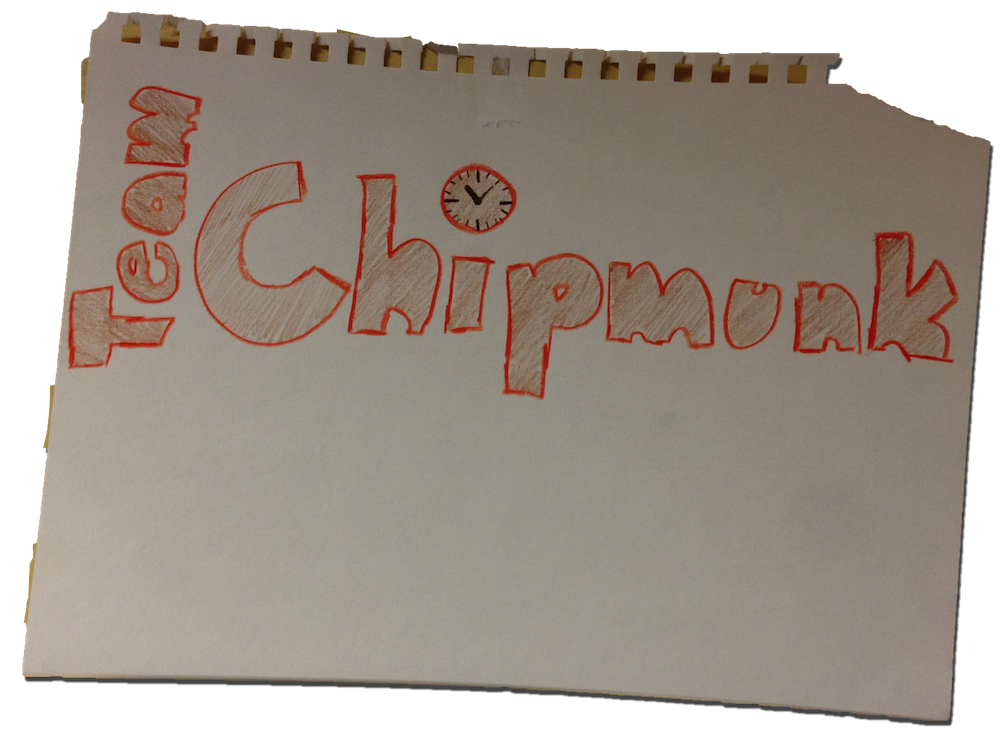 Team
Chipmunk